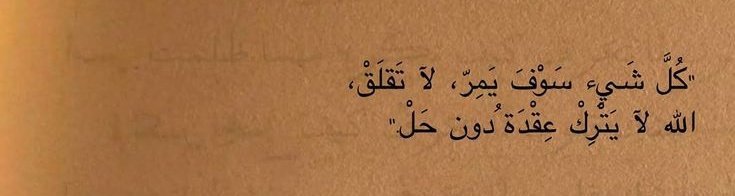 "كُلَّ شَيء سَوْفَ يَمِرّ، لآ تَقلَقْ،
الله لآ يَتْرِكْ عِقْدَة ُدون حَلْ"